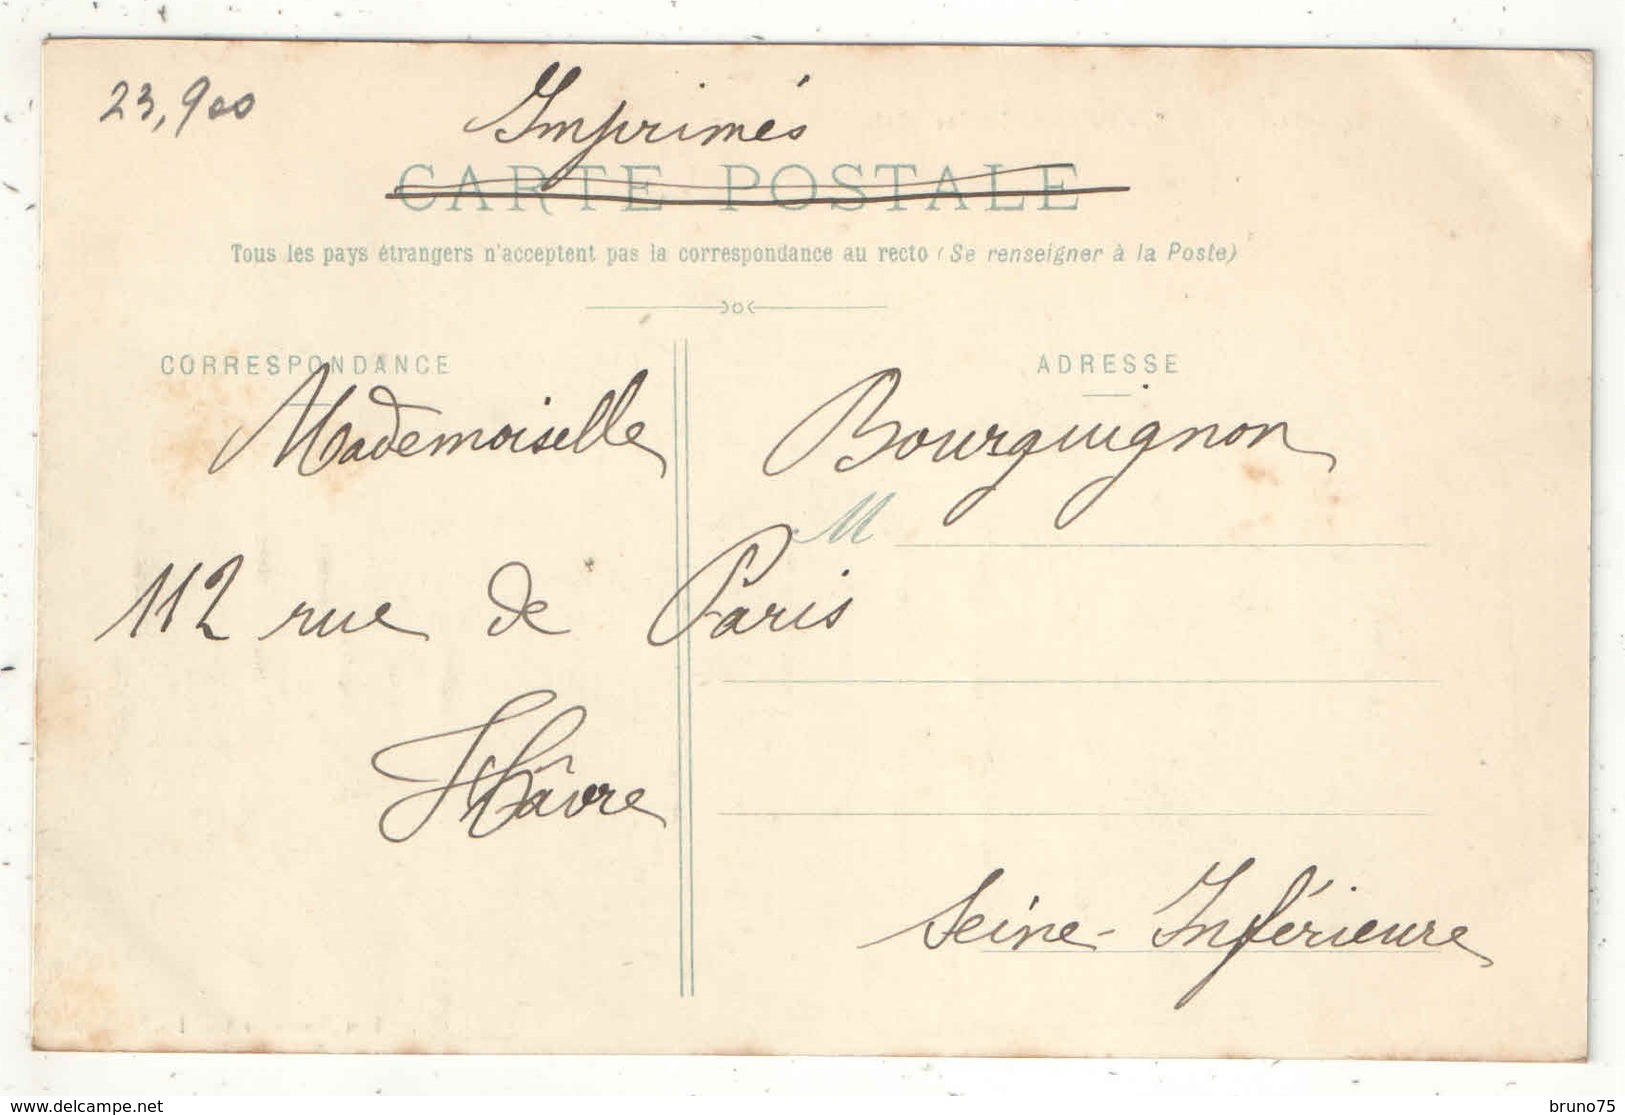 23,900
Imprimés
CARTE POSTALE
Tous les pays étrangers n'acceptent pas la correspondance au recto (Se renseigner à la Poste)
CORRESPONDANCE
ADRESSE
Mademoiselle Bourguignon
M
112 rue de Paris
Hâvre
Seine-Inférieure
www.delcampe.net
bruno75